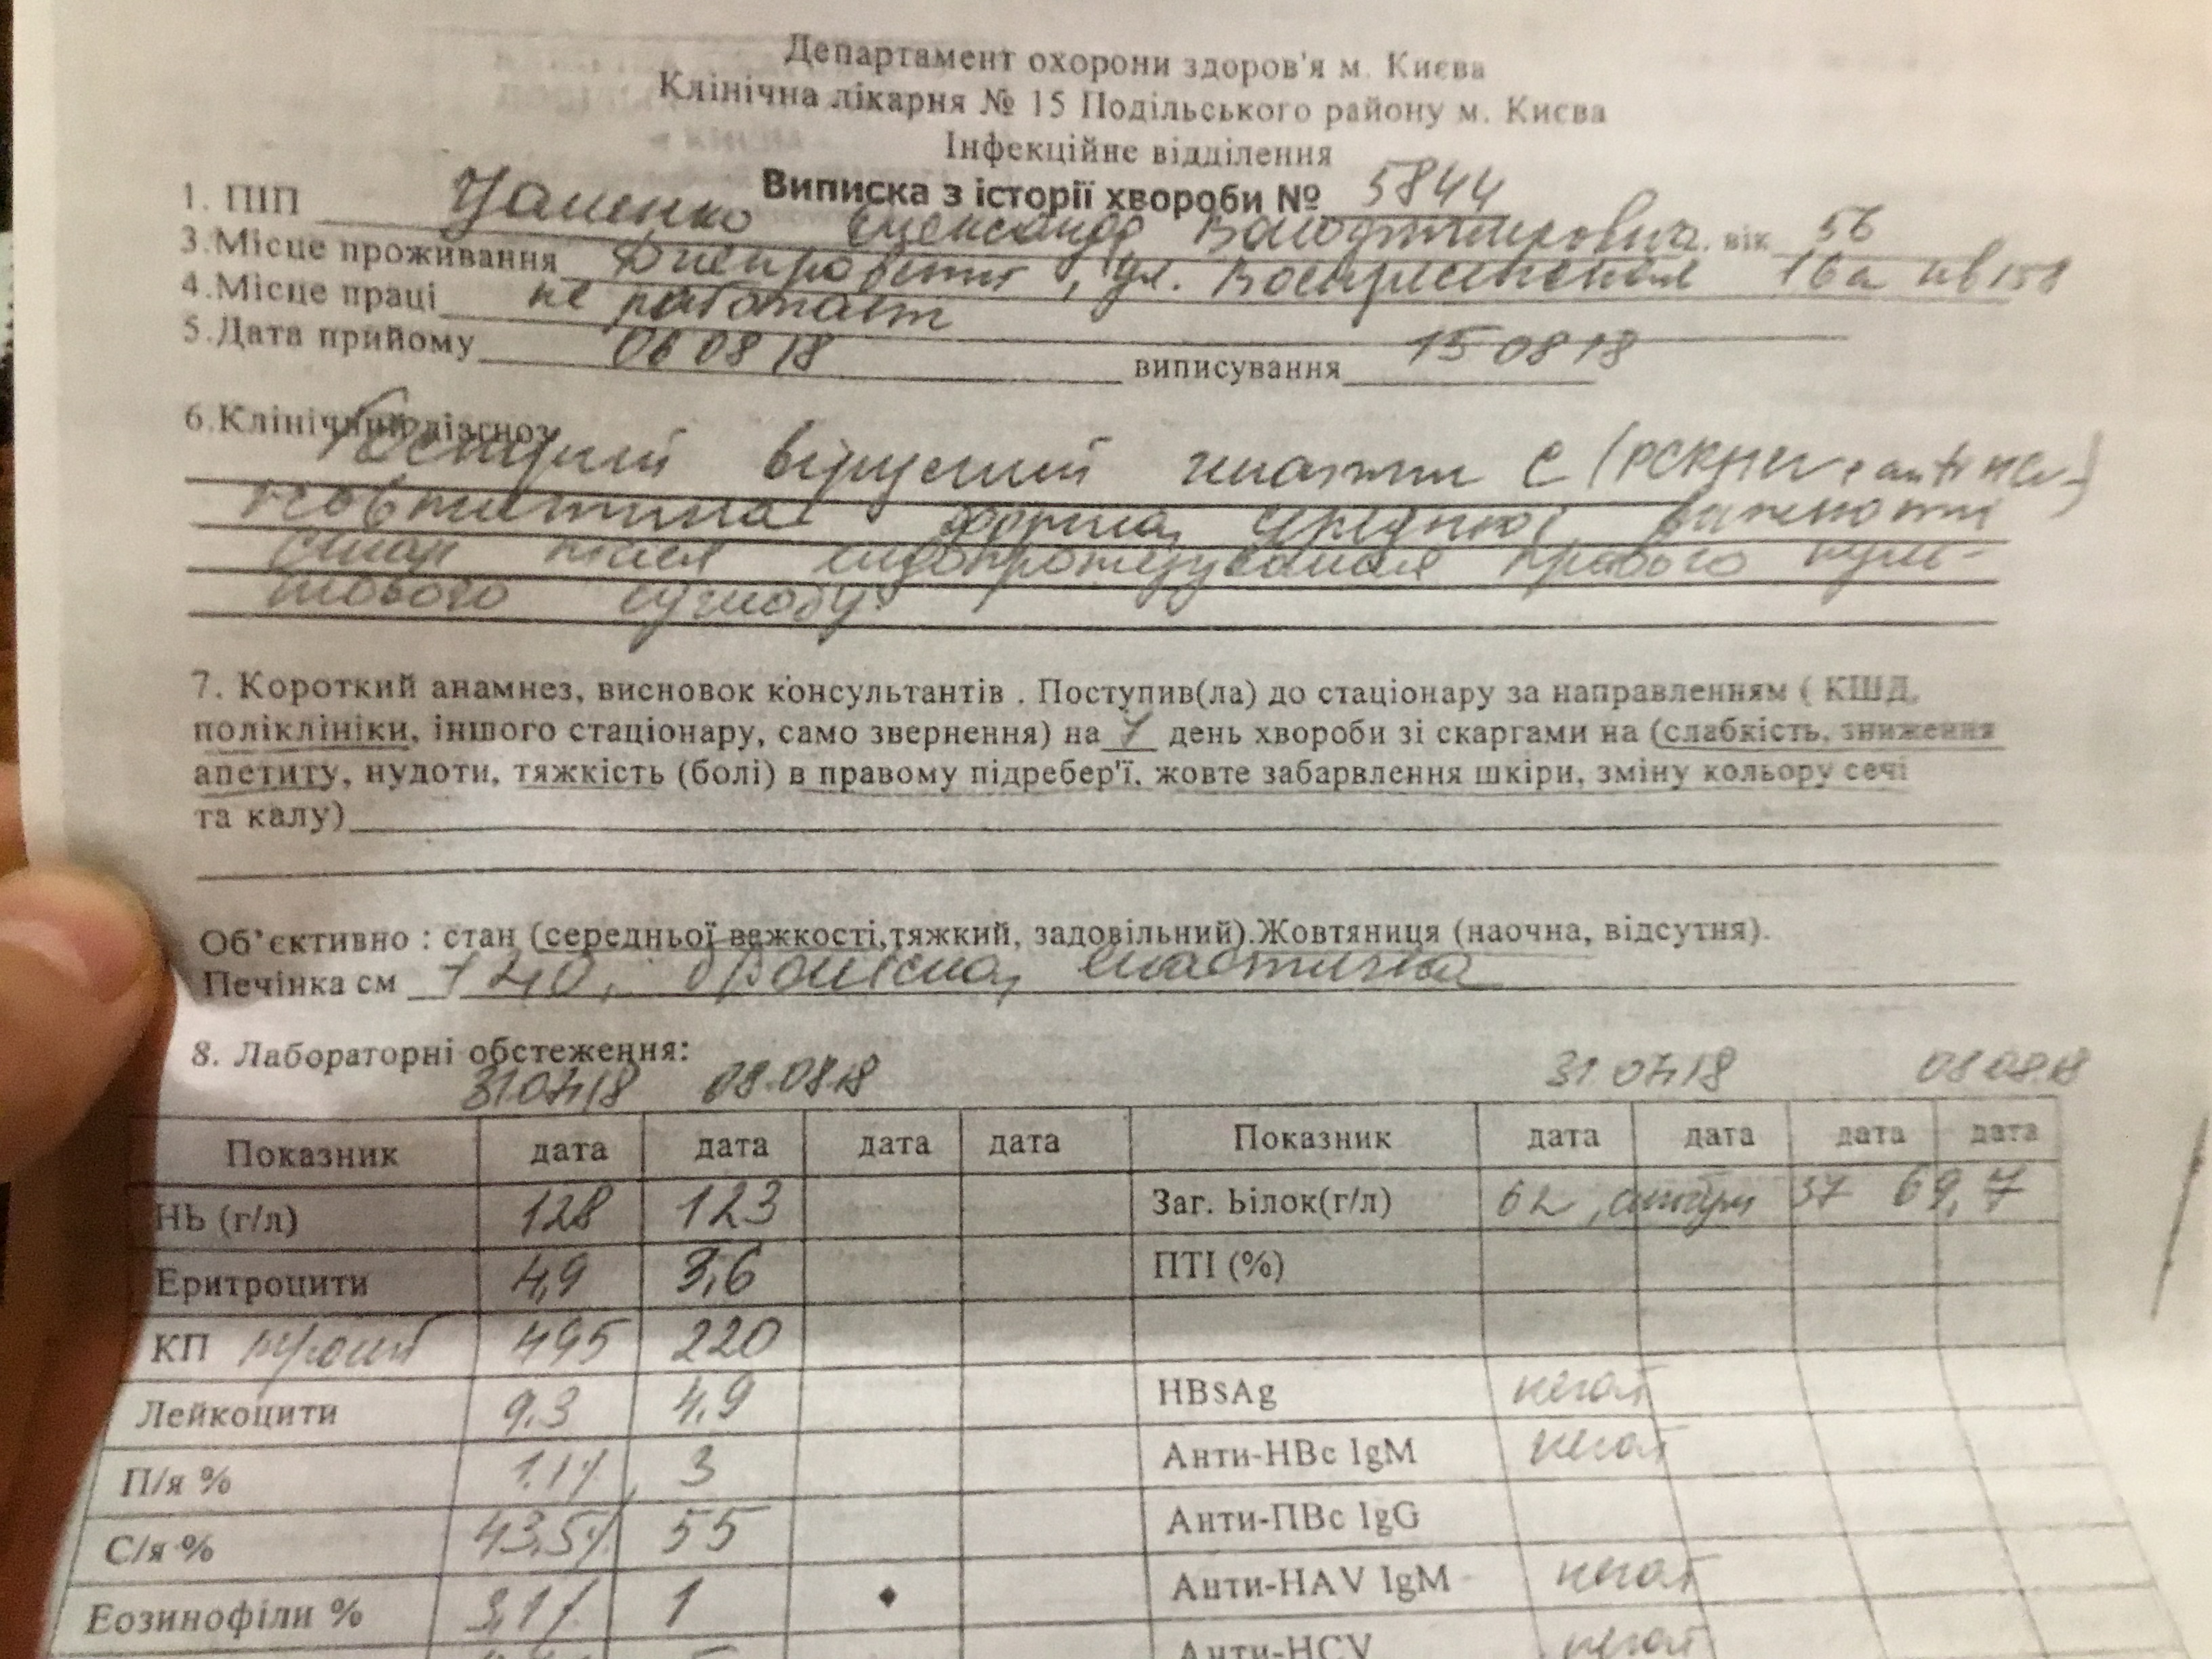 Департамент охорони здоров'я м. Києва
Клінічна лікарня № 15 Подільського району м. Києва
Інфекційне відділення
Виписка з історії хвороби № 5844
1. ПІП Олександр Володимирович, вік 56
3.Місце проживання ул. 16а кв 158
4.Місце праці не работает
5.Дата прийому 06 08 18 виписування 15 08 18
6.Клінічний діагноз
Гострий вірусний гепатит С
жовтянична форма, середньої важкості
Стан після ендопротезування правого куль-
шового суглобу.
7. Короткий анамнез, висновок консультантів . Поступив(ла) до стаціонару за направленням ( КШД,
поліклініки, іншого стаціонару, само звернення) на 7 день хвороби зі скаргами на (слабкість, зниження
апетиту, нудоти, тяжкість (болі) в правому підребер'ї, жовте забарвлення шкіри, зміну кольору сечі
та калу)
Об'єктивно : стан (середньої важкості,тяжкий, задовільний).Жовтяниця (наочна, відсутня).
Печінка см еластична
8. Лабораторні обстеження:
31 07 18 08.08 18 31 07 18 08 08.18
Показник дата дата дата дата Показник дата дата дата дата
НЬ (г/л) 128 123 Заг. Білок(г/л) 62 , 37 69,7
Еритроцити 4,9 3,6 ПТІ (%)
КП 495 220
Лейкоцити 9.3 4,9 HBsAg негат
П/я % 1.1% 3 Анти-НВс IgM негат
С/я % 43,5% 55 Анти-ПВс IgG
Еозинофіли % 3,1% 1 Анти-HAV IgM негат
Анти-HCV негат